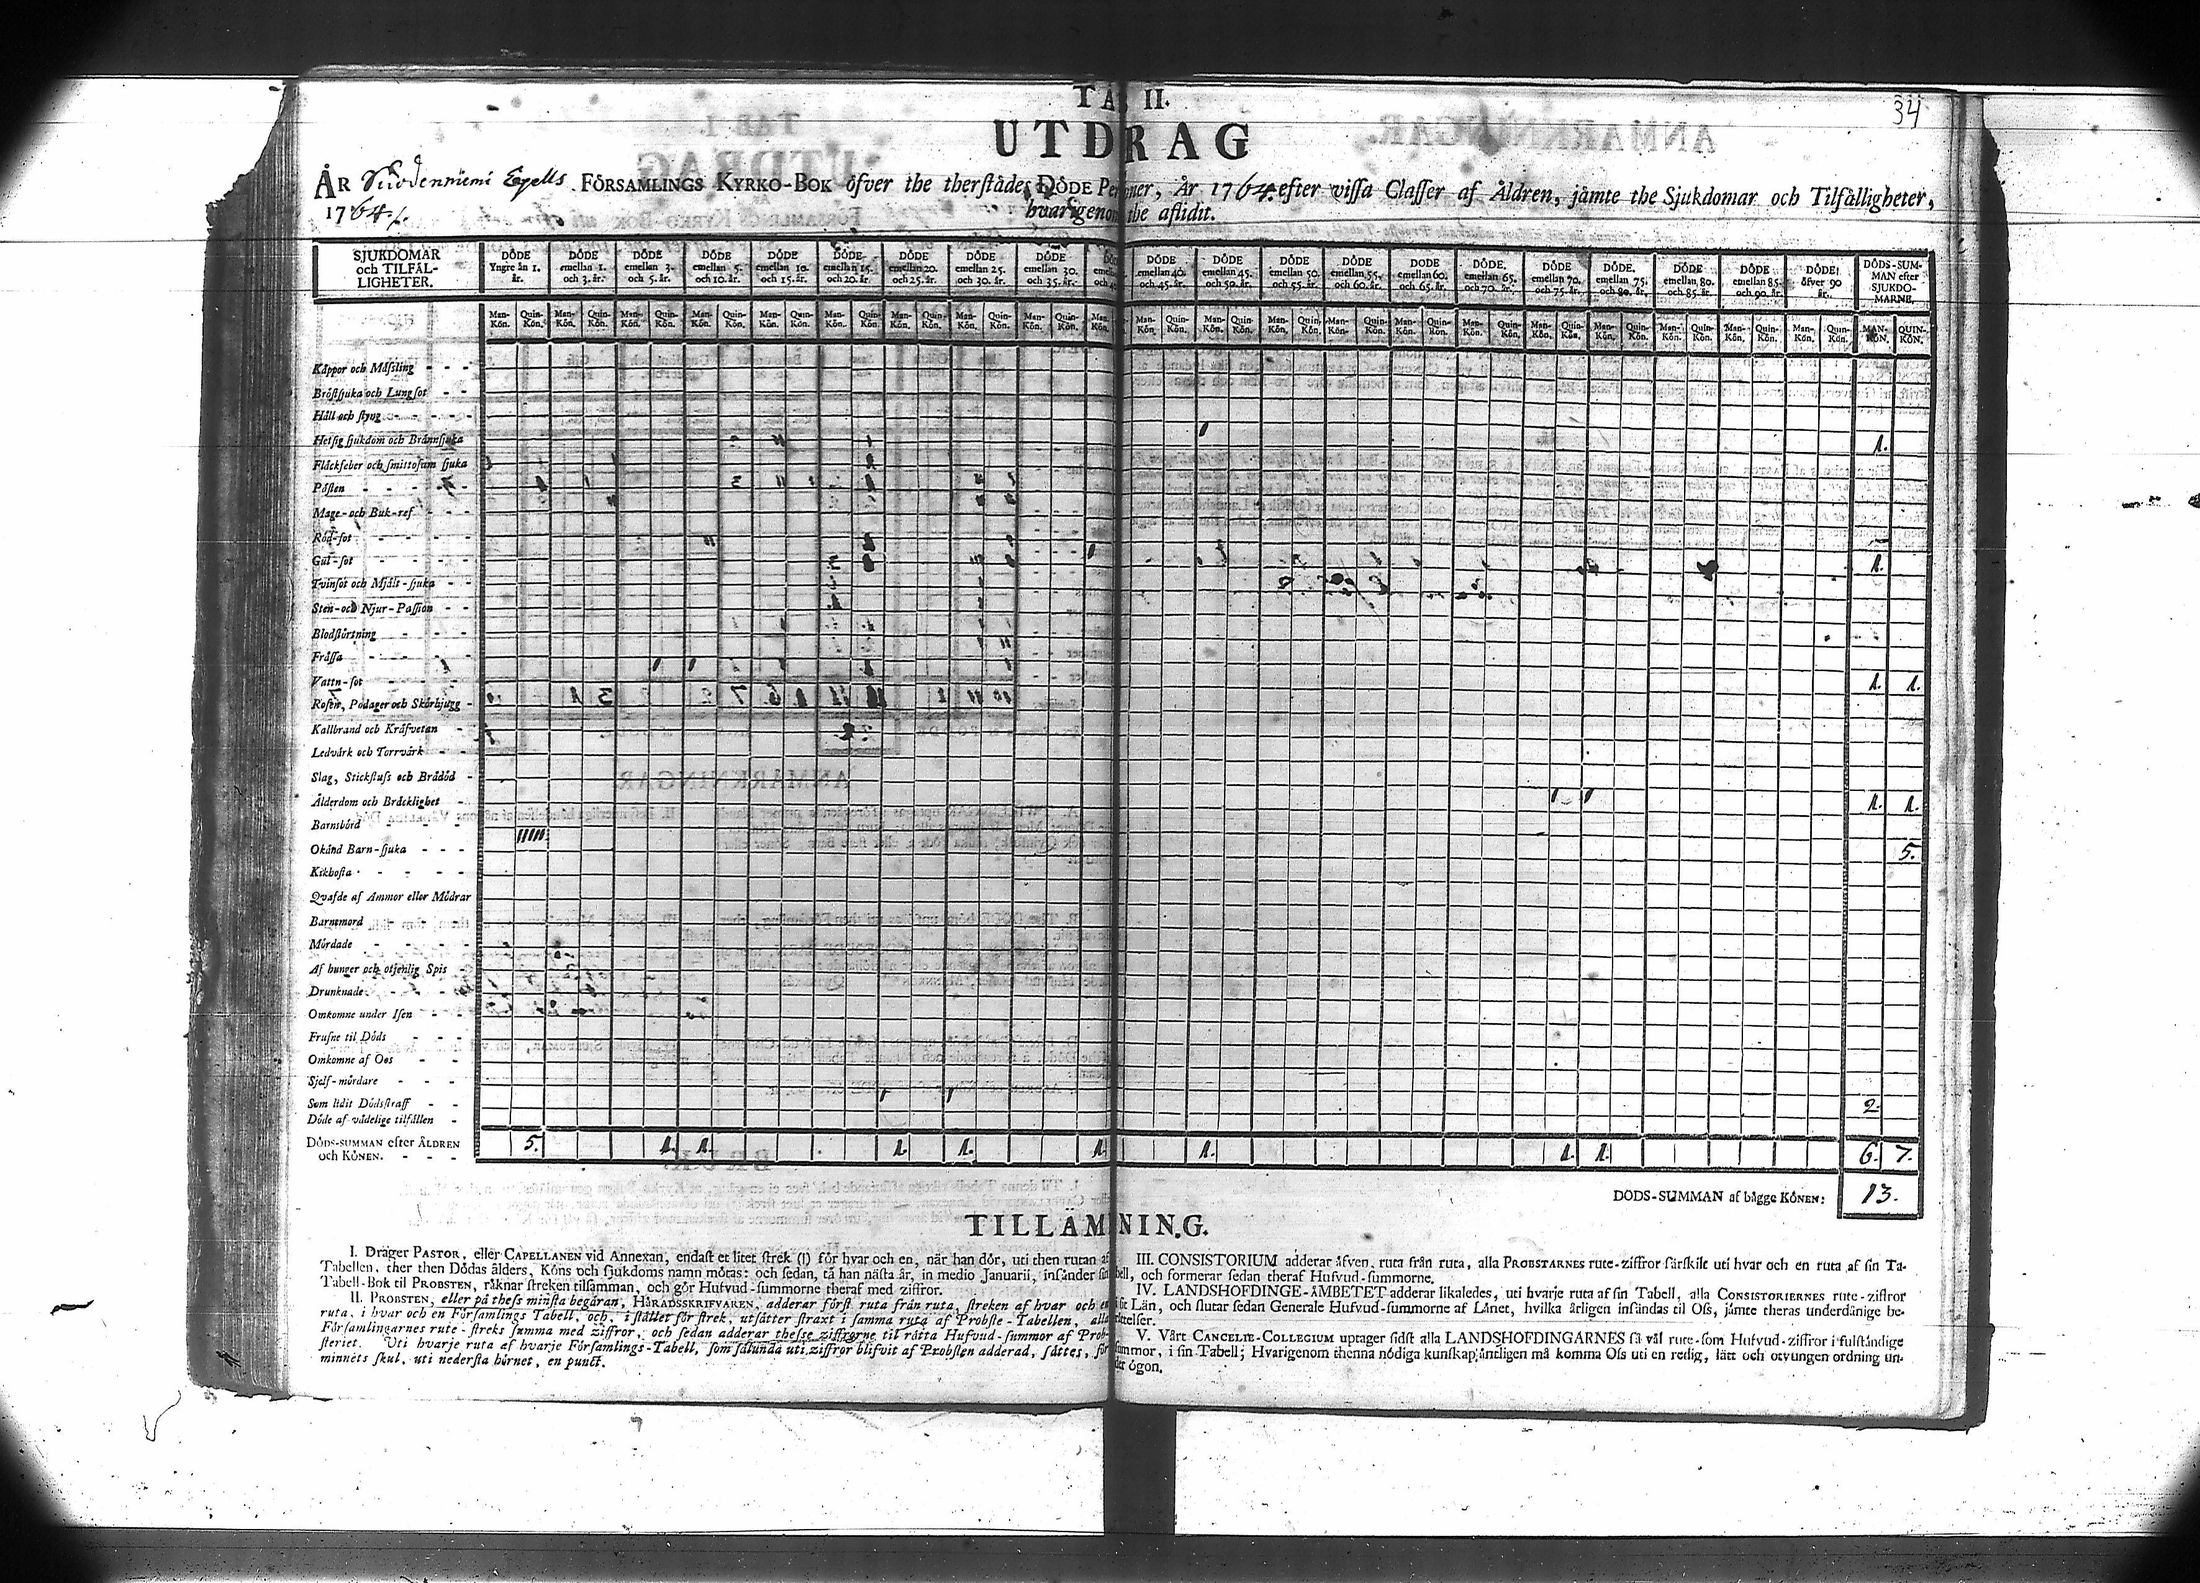 34
TAB II.
UTDRAG
ÅR Suodenniemi Capells FÖRSAMLINGS KYRKO-BOK öfver the therstädes DÖDE Personer, År 1764. efter vissa Classer af Åldren, jämte the Sjukdomar och Tilfälligheter,
1764. hvarigenom the aflidit.
SJUKDOMAR och TILFÄL-LIGHETER.
DÖDE Yngre än 1. år.
DÖDE emellan 1. och 3. år.
DÖDE emellan 3. och 5. år.
DÖDE emellan 5. och 10. år.
DÖDE emellan 10. och 15. år.
DÖDE emellan 15. och 20. år.
DÖDE emellan 20. och 25. år.
DÖDE emellan 25. och 30. år.
DÖDE emellan 30. och 35. år.
DÖDE emellan 40. och 45. år.
DÖDE emellan 45. och 50. år.
DÖDE emellan 50. och 55. år.
DÖDE emellan 55. och 60. år.
DÖDE emellan 60. och 65. år.
DÖDE emellan 65. och 70. år.
DÖDE emellan 70. och 75. år.
DÖDE emellan 75. och 80. år.
DÖDE emellan 80. och 85. år.
DÖDE emellan 85. och 90. år.
DÖDE öfver 90 år.
DÖDS-SUM-MAN efter SJUKDO-MARNE.
Man-Kön. Quin-Kön. Man-Kön. Quin-Kön. Man-Kön. Quin-Kön. Man-Kön. Quin-Kön. Man-Kön. Quin-Kön. Man-Kön. Quin-Kön. Man-Kön. Quin-Kön. Man-Kön. Quin-Kön. Man-Kön. Quin-Kön. Man-Kön. Man-Kön. Quin-Kön. Man-Kön. Quin-Kön. Man-Kön. Quin-Kön. Man-Kön. Quin-Kön. Man-Kön. Quin-Kön. Man-Kön. Quin-Kön. Man-Kön. Quin-Kön. Man-Kön. Quin-Kön. Man-Kön. Quin-Kön. Man-Kön. Quin-Kön. Man-Kön. Quin-Kön. MAN-KÖN. QUIN-KÖN.
Kåppor och Mässling
Bröstsjuka och Lungsot
Håll och styng
Hetsig sjukdom och Brännsjuka 1.
Fläckfeber och smittosam sjuka
Pästen
Mage- och Buk-ref
Röd-sot
Gul-sot 1.
Tvinsot och Mjält-sjuka
Sten- och Njur-Passion
Blodstörtning
Frässa
Vattn-sot 1. 1.
Rosen, Podager och Skörbjugg
Kallbrand och Kräfvetan
Ledvärk och Torrvärk
Slag, Stickfluss och Brådöd
Ålderdom och Bräcklighet 1. 1.
Barnsbörd
Okänd Barn-sjuka 5.
Kikhosta
Qvafde af Ammor eller Mödrar
Barnemord
Mördade
Af hunger och otjenlig Spis
Drunknade
Omkomne under Isen
Frusne til Döds
Omkomne af Oos
Sjelf-mördare
Som lidit Dödsstraff
Döde af vådelige tilfällen 2.
DÖDS-SUMMAN efter ÅLDREN och KÖNEN. 5. 1. 1. 1. 1. 1. 1. 1. 1. 6. 7.
DÖDS-SUMMAN af bägge KÖNEN: 13.
TILLÄMNING.
I. Dräger PASTOR, eller CAPELLANEN vid Annexan, endast et litet strek (I) för hvar och en, när han dör, uti then rutan af
Tabellen, ther then Dödas ålders, Köns och sjukdoms namn mötas: och sedan, tå han nästa år, in medio Januarii, insänder sin
Tabell-Bok til PROBSTEN, räknar streken tilsamman, och gör Hufvud-summorne theraf med ziffror.
II. PROBSTEN, eller på thess minsta begäran, HÄRADSSKRIFVAREN, adderar först ruta från ruta, streken af hvar och en
ruta, i hvar och en Församlings Tabell, och, i stället för strek, utsätter straxt i samma ruta af Probste-Tabellen, alla
Församlingarnes rute-streks summa med ziffror; och sedan adderar thesse ziffrorne til rätta Hufvud-summor af Prob-
steriet. Uti hvarje ruta af hvarje Församlings-Tabell, som sålunda uti ziffror blifvit af Probsten adderad, sättes, för
minnets skul, uti nedersta hörnet, en punct.
III. CONSISTORIUM adderar äfven, ruta från ruta, alla PROBSTARNES rute-ziffror särskilt uti hvar och en ruta af sin Ta-
bell, och formerar sedan theraf Hufvud-summorne.
IV. LANDSHÖFDINGE-ÄMBETET adderar likaledes, uti hvarje ruta af sin Tabell, alla CONSISTORIERNES rute-ziffror
i sit Län, och slutar sedan Generale Hufvud-summorne af Länet, hvilka årligen insändas til Oss, jämte theras underdånige be-
rättelser.
V. Vårt CANCELIE-COLLEGIUM uptager sidst alla LANDSHÖFDINGARNES så väl rute- som Hufvud-ziffror i fulständige
summor, i sin Tabell; Hvarigenom thenna nödiga kunskap äntligen må komma Oss uti en redig, lätt och otvungen ordning un-
der ögon.